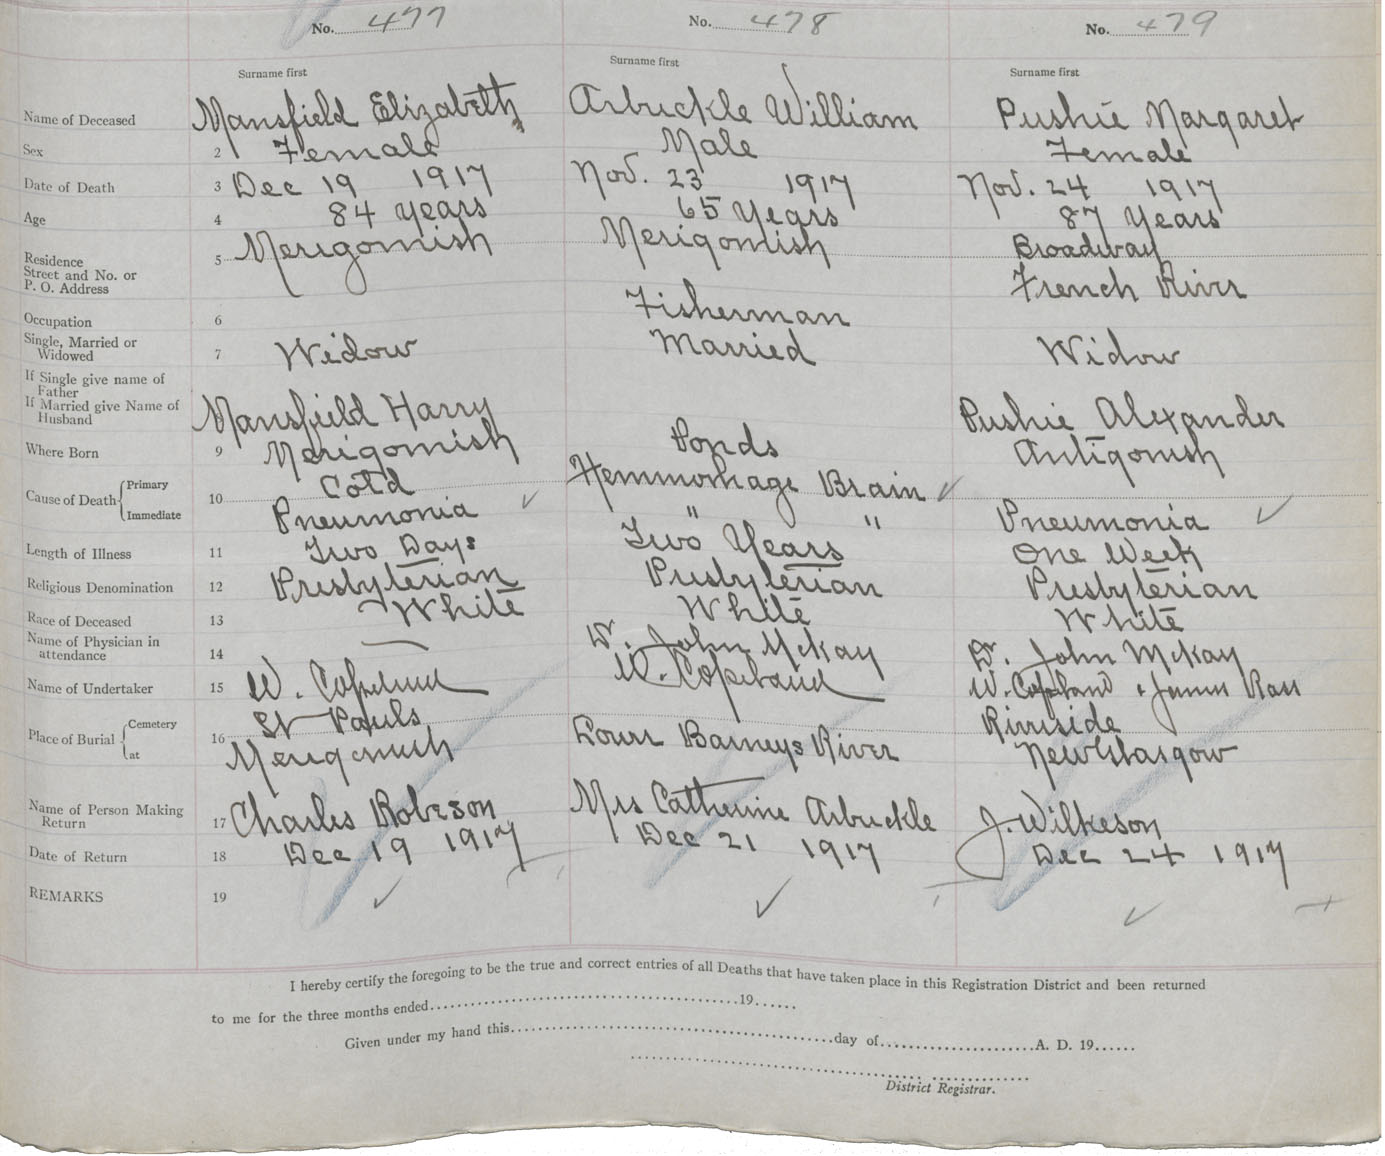 No. 477 No. 478 No. 479
Surname first Surname first Surname first
Name of Deceased Mansfield Elizabeth Arbuckle William Pushie Margaret
Sex 2 Female Male Female
Date of Death 3 Dec 19 1917 Nov. 23 1917 Nov. 24 1917
Age 4 84 years 65 Years 87 Years
Residence 5 Merigomish Merigomish Broadway
Street and No. or
P. O. Address French River
Occupation 6 Fisherman
Single, Married or
Widowed 7 Widow Married Widow
If Single give name of
Father
If Married give Name of
Husband Mansfield Harry Pushie Alexander
Where Born 9 Merigomish Ponds Antigonish
Cause of Death Primary 10 Cold Hemmorhage Brain
Immediate Pneumonia " " Pneumonia
Length of Illness 11 Two Days Two Years One Week
Religious Denomination 12 Presbyterian Presbyterian Presbyterian
Race of Deceased 13 White White White
Name of Physician in
attendance 14 — Dr. John McKay Dr. John McKay
Name of Undertaker 15 W. Copeland W. Copeland W. Copeland + James Ross
Place of Burial Cemetery 16 St Pauls Riverside
at Merigomish Lower Barneys River New Glasgow
Name of Person Making
Return 17 Charles Robeson Mrs Catherine Arbuckle J. Wilkeson
Date of Return 18 Dec 19 1917 Dec 21 1917 Dec 24 1917
REMARKS 19
I hereby certify the foregoing to be the true and correct entries of all Deaths that have taken place in this Registration District and been returned
to me for the three months ended 19
Given under my hand this day of A. D. 19
District Registrar.